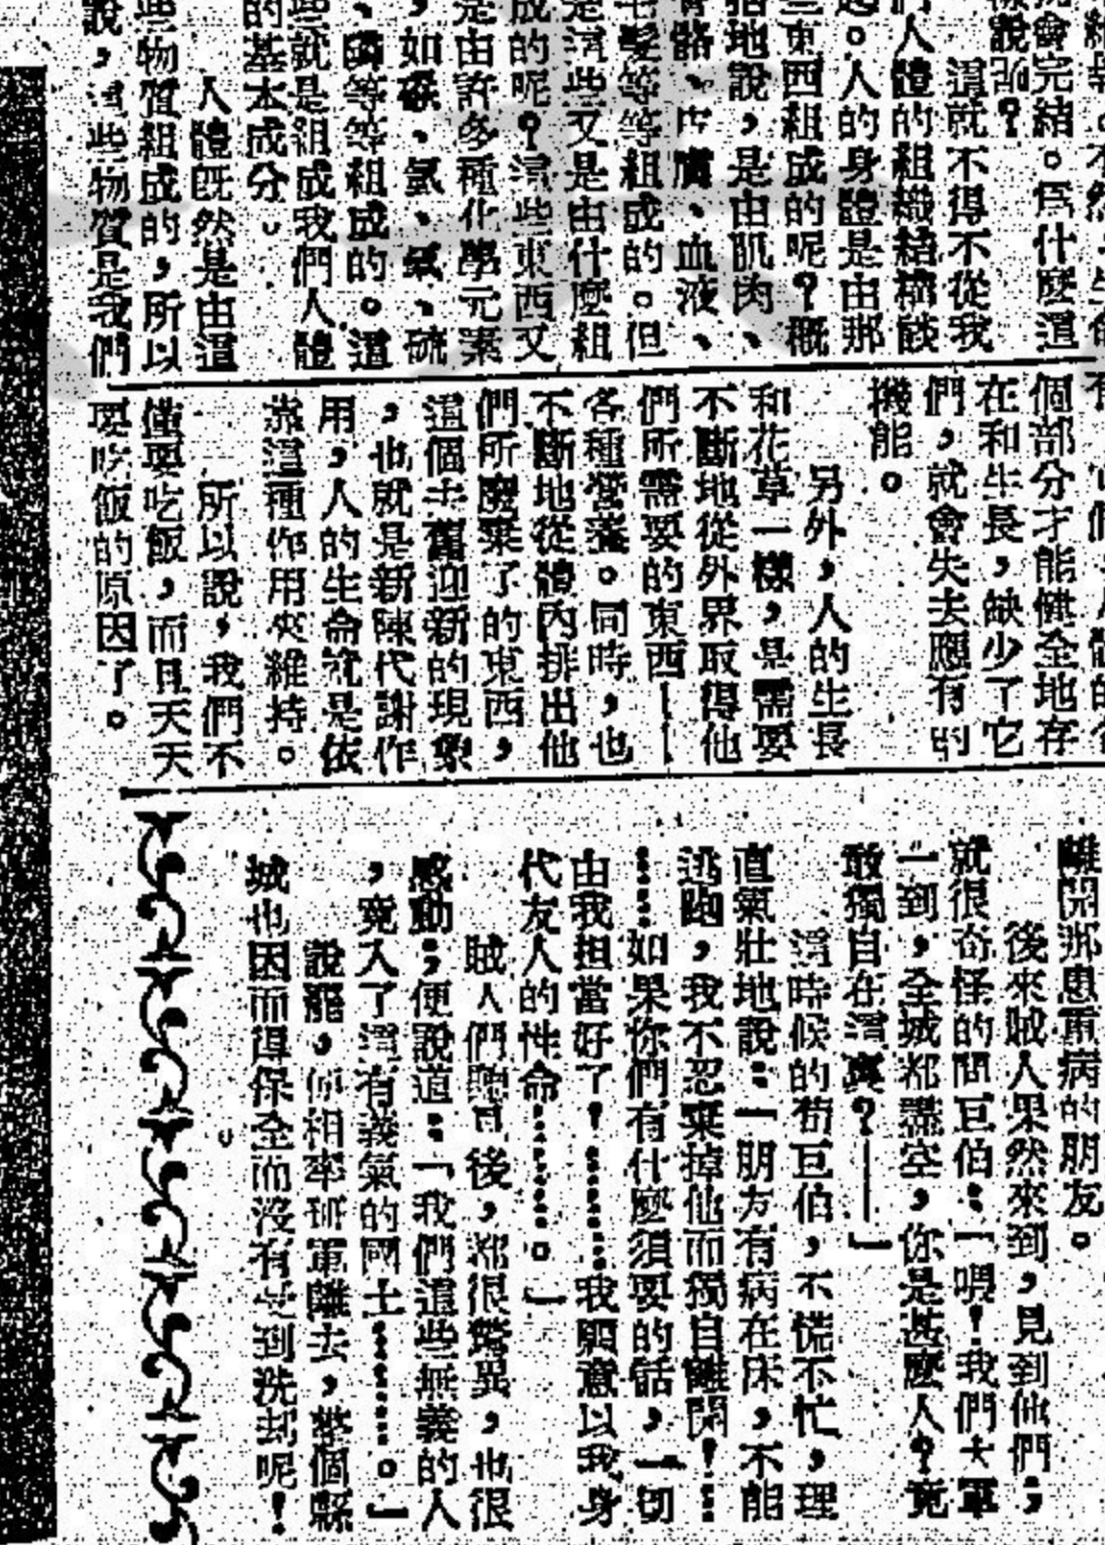 就會完結。爲什麼這
樣說呢?
這就不得不從我
們人體的組織結構談
起。人的身體是由那
些東西組成的呢?概
括地說,是由肌肉、
骨骼、皮膚、血液、
毛髮等等組成的。但
是這些又是由什麼組
成的呢?這些東西又
是由許多種化學元素
,如碳、氫、氧、硫
、磷等等組成的。這
些就是組成我們人體
的基本成分。
人體既然是由這
些物質組成的,所以
說,這些物質是我們
個部分才能健全地存
在和生長,缺少了它
們,就會失去應有的
機能。
另外,人的生長
和花草一樣,是需要
不斷地從外界取得他
們所需要的東西——
各種營養。同時,也
不斷地從體內排出他
們所廢棄了的東西,
這個去舊迎新的現象
,也就是新陳代謝作
用,人的生命就是依
靠這種作用來維持。
所以說,我們不
僅要吃飯,而且天天
要吃飯的原因了。
離開那患重病的朋友。
後來賊人果然來到,見到他們;
就很奇怪的問巨伯:「喂!我們大軍
一到,全城都盡空,你是甚麼人?竟
敢獨自在這裏?——」
這時候的荀巨伯,不慌不忙,理
直氣壯地說:「朋友有病在床,不能
逃跑,我不忍棄掉他而獨自離開!⋯
⋯⋯如果你們有什麼須要的話,一切
由我担當好了!⋯⋯⋯我願意以我身
代友人的性命⋯⋯⋯。」
賊人們聽了後,都很驚異,也很
感動;便說道:「我們這些無義的人
,竟入了這有義氣的國土⋯⋯⋯。」
說罷,便相率班軍離去,整個縣
城也因而得保全而沒有受到洗刼呢!